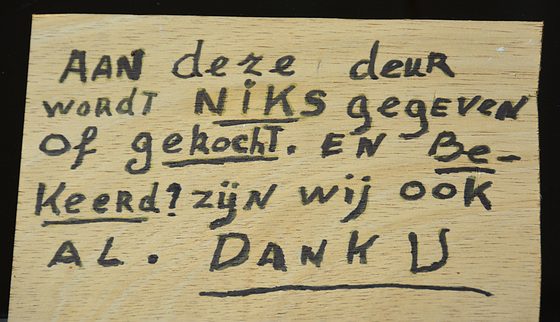 AAN deze deur
wordt NiKs gegeven
of gekocht. EN Be-
Keerd? zijn wij ook
AL. DANK U